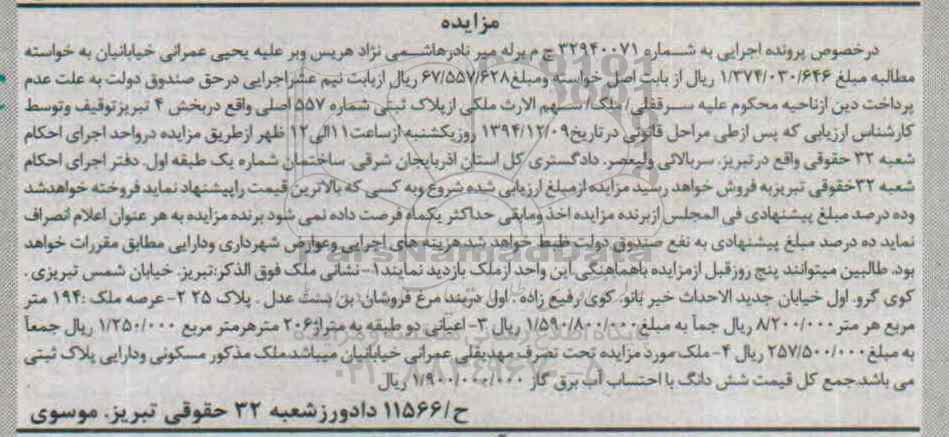 مزایده
درخصوص پرونده اجرایی به شماره ۳۲۹۴۰۰۷۱ ج م برله میر نادرهاشمی نژاد هریس وبر علیه یحیی عمرانی خیابانیان به خواسته
مطالبه مبلغ ۱/۳۷۴/۰۳۰/۶۴۶ ریال از بابت اصل خواسته ومبلغ ۶۷/۵۵۷/۶۲۸ ریال ازبابت نیم عشراجرایی درحق صندوق دولت به علت عدم
پرداخت دین ازناحیه محکوم علیه سرقفلی/ملک/سهم الارث ملکی ازپلاک ثبتی شماره ۵۵۷ اصلی واقع دربخش ۴ تبریزتوقیف وتوسط
کارشناس ارزیابی که پس ازطی مراحل قانونی درتاریخ ۱۳۹۴/۱۲/۰۹ روزیکشنبه ازساعت۱۱الی ۱۲ ظهر ازطریق مزایده درواحد اجرای احکام
شعبه ۳۲ حقوقی واقع درتبریز. سربالائی ولیعصر. دادگستری کل استان آذربایجان شرقی. ساختمان شماره یک طبقه اول. دفتر اجرای احکام
شعبه ۳۲حقوقی تبریزبه فروش خواهد رسید مزایده ازمبلغ ارزیابی شده شروع وبه کسی که بالاترین قیمت راپیشنهاد نماید فروخته خواهدشد
وده درصد مبلغ پیشنهادی فی المجلس ازبرنده مزایده اخذ ومابقی حداکثر یکماه فرصت داده نمی شود برنده مزایده به هر عنوان اعلام انصراف
نماید ده درصد مبلغ پیشنهادی به نفع صندوق دولت ظبط خواهد شد.هزینه های اجرایی وعوارض شهرداری ودارایی مطابق مقررات خواهد
بود. طالبین میتوانند پنج روزقبل ازمزایده باهماهنگی این واحد ازملک بازدید نمایند۱-نشانی ملک فوق الذکر:تبریز. خیابان شمس تبریزی.
کوی گرو. اول خیابان جدید الاحداث خیر بانو. کوی رفیع زاده. اول دربند مرغ فروشان. بن بست عدل. پلاک ۲۵ ۲-عرصه ملک :۱۹۴ متر
مربع هر متر ۸/۲۰۰/۰۰۰ ریال جماً به مبلغ ۱/۵۹۰/۸۰۰/۰۰۰ ریال ۳- اعیانی دو طبقه به متراژ۲۰۶ مترهرمتر مربع ۱/۲۵۰/۰۰۰ ریال جمعاً
به مبلغ ۲۵۷/۵۰۰/۰۰۰ ریال ۴-ملک مورد مزایده تحت تصرف مهدیقلی عمرانی خیابانیان میباشد.ملک مذکور مسکونی ودارایی پلاک ثبتی
می باشد.جمع کل قیمت شش دانگ با احتساب آب برق گاز ۱/۹۰۰/۰۰۰/۰۰۰ ریال
ح/۱۱۵۶۶ دادورزشعبه ۳۲ حقوقی تبریز. موسوی
ParsNamadData